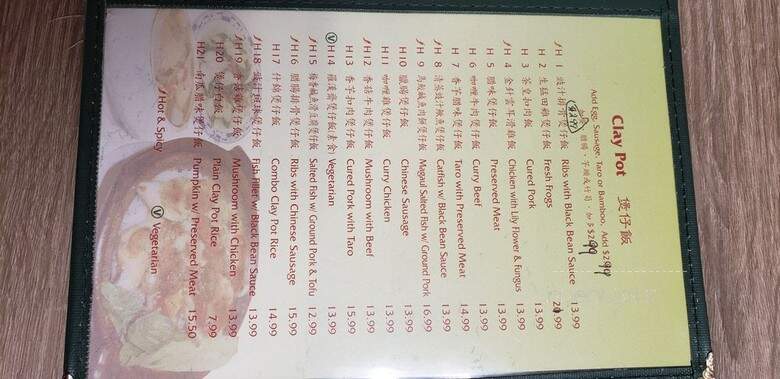 Clay Pot 煲仔飯
Add Egg, Sausage, Taro or Bamboo, Add $2.99
臘腸、芋頭或竹筍，加多$2.99
H 1 豉汁排骨煲仔飯 Ribs with Black Bean Sauce 13.99
H 2 生猛田雞煲仔飯 Fresh Frogs
H 3 茶皇扣肉飯 Cured Pork 13.99
H 4 金針雲耳滑雞飯 Chicken with Lily Flower & Fungus 13.99
H 5 臘味煲仔飯 Preserved Meat 13.99
H 6 咖喱牛肉煲仔飯 Curry Beef 13.99
H 7 香芋臘味煲仔飯 Taro with Preserved Meat 14.99
H 8 清蒸豉汁鯰魚煲仔飯 Catfish w/ Black Bean Sauce 13.99
H 9 馬鮫鹹魚肉餅煲仔飯 Magaul Salted Fish w/ Ground Pork 16.99
H10 臘腸煲仔飯 Chinese Sausage 13.99
H11 咖喱雞煲仔飯 Curry Chicken 13.99
H12 香菇牛肉煲仔飯 Mushroom with Beef 13.99
H13 香芋扣肉煲仔飯 Cured Pork with Taro 15.99
V H14 羅漢齋煲仔飯(素食) Vegetarian 13.99
H15 梅香鹹魚滑豆腐煲仔飯 Salted Fish w/ Ground Pork & Tofu 12.99
H16 臘腸排骨煲仔飯 Ribs with Chinese Sausage 15.99
H17 什錦煲仔飯 Combo Clay Pot Rice 14.99
H18 豉汁班球煲仔飯 Fish Fillet w/ Black Bean Sauce 13.99
H19 香菇雞煲仔飯 Mushroom with Chicken 13.99
H20 煲仔白飯 Plain Clay Pot Rice 7.99
H21 南瓜臘味煲仔飯 Pumpkin w/ Preserved Meat 15.50
Hot & Spicy
V Vegetarian